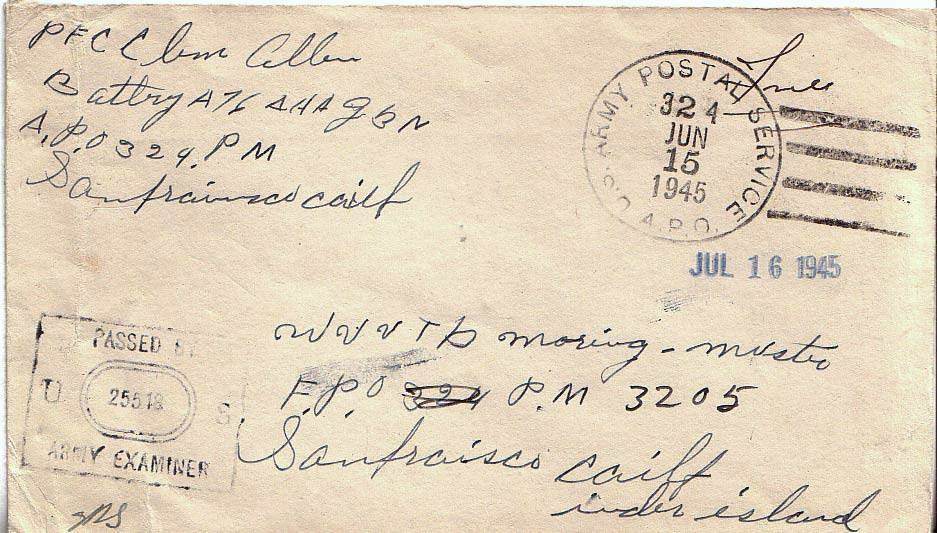 PFC Clem Allen
Battry A 76 AAA g BN
A.P.O 324. P M
Sanfrainsco cailf
Free
U.S. ARMY POSTAL SERVICE
A.P.O.
324
JUN
15
1945
JUL 16 1945
PASSED BY
U. S.
25518
ARMY EXAMINER
moring - mvstro
F.P.O 324 P.M 3205
Sanfraisco cailf
inder island